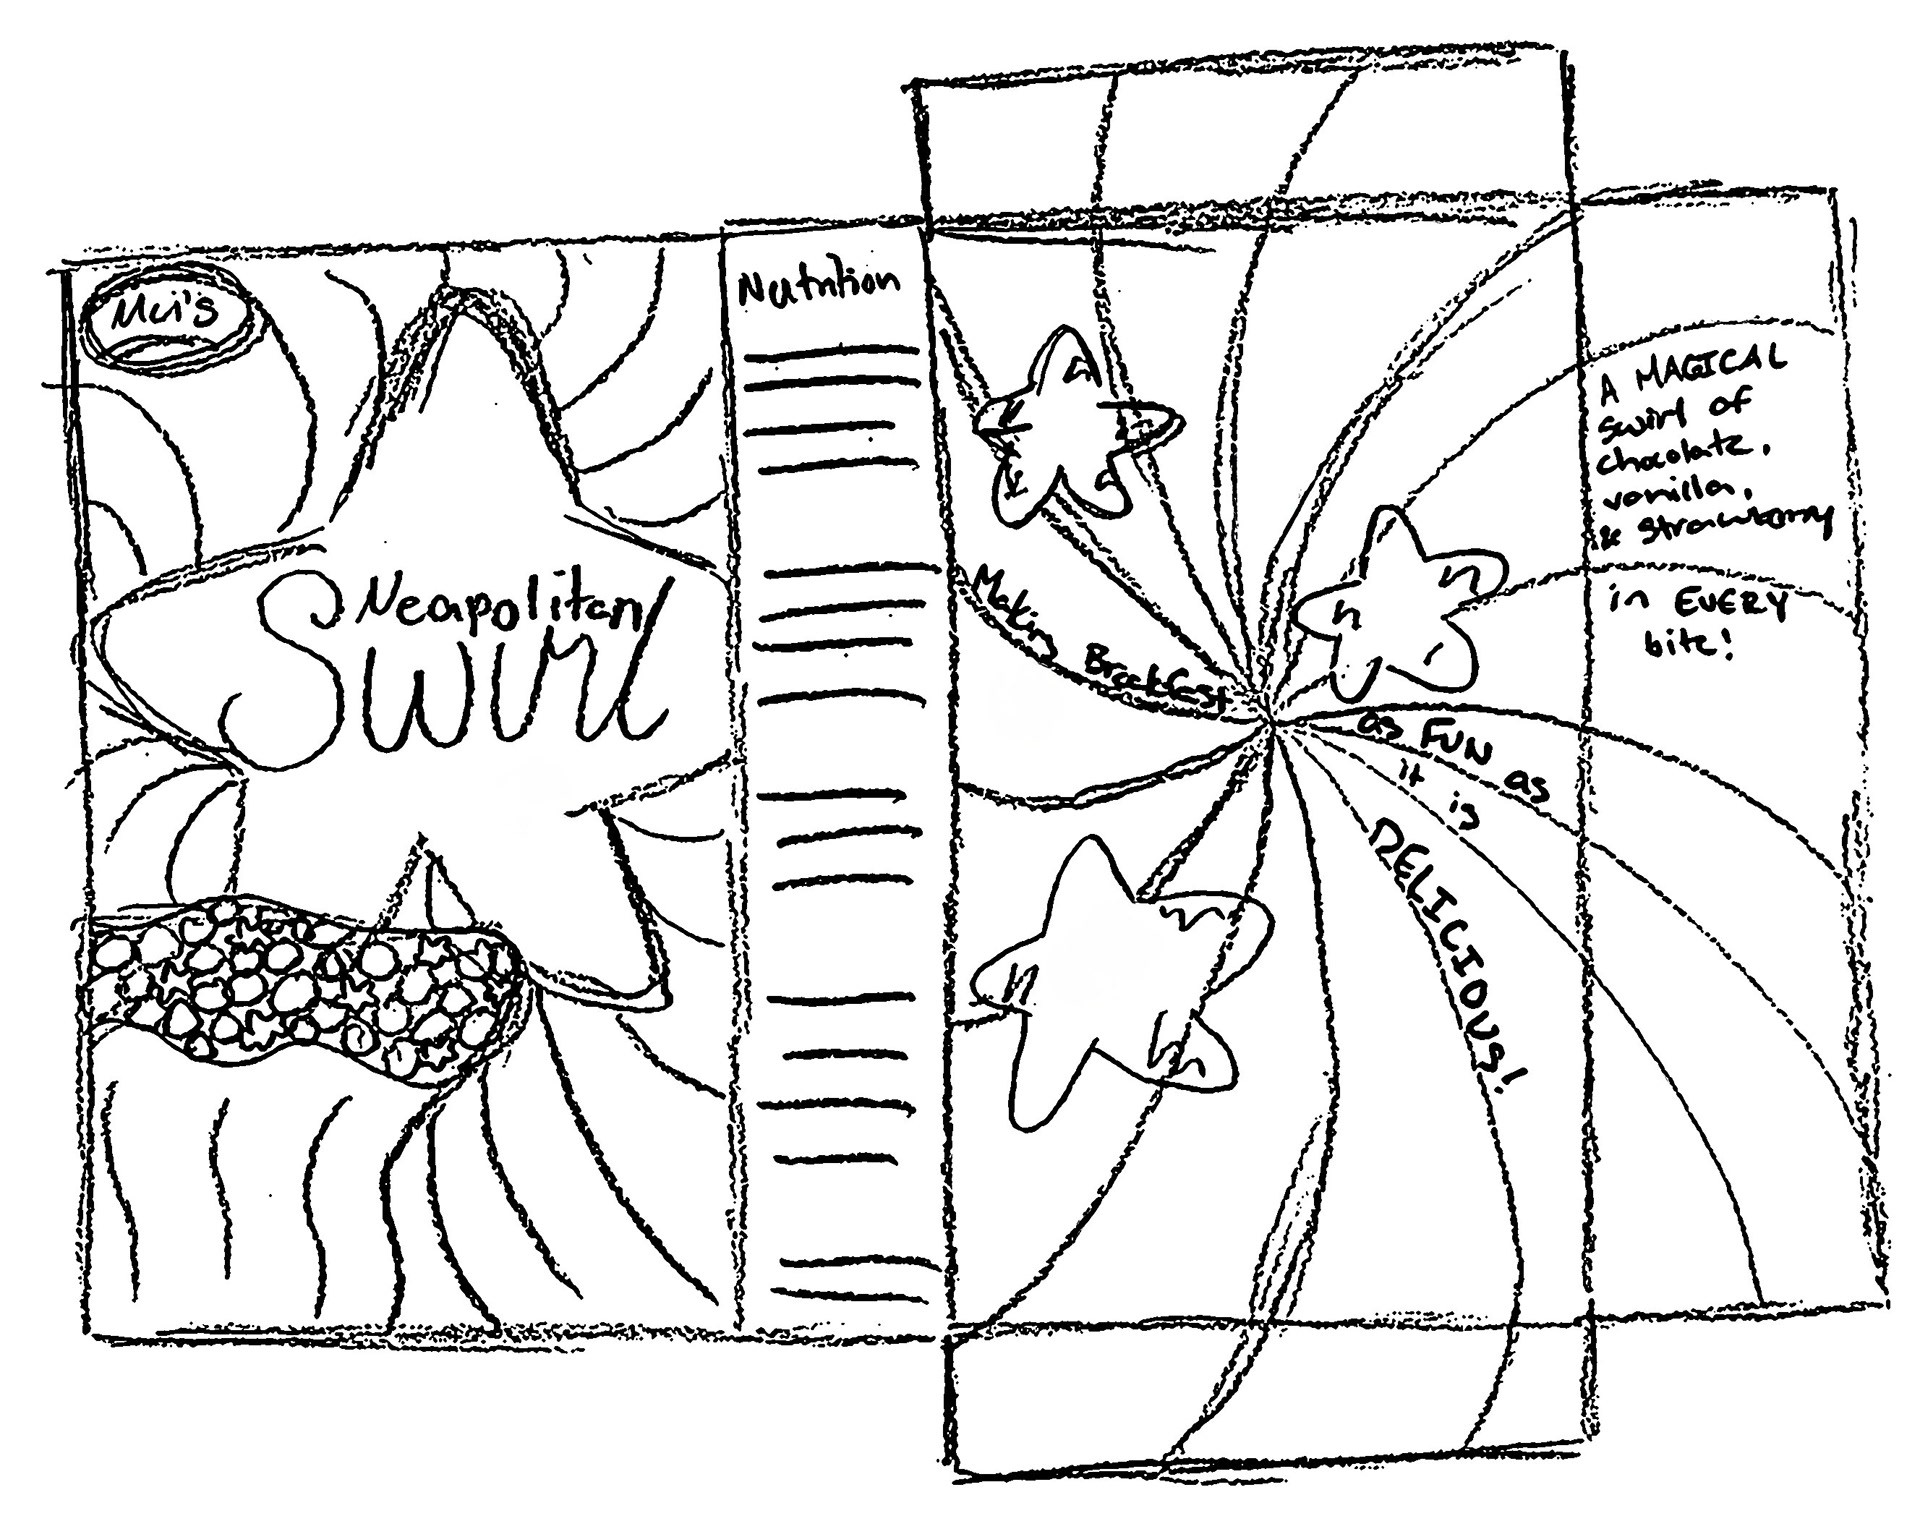 Mei's
Neapolitan
Swirl
Nutrition
Making Breakfast
as FUN as
it is
DELICIOUS!
A MAGICAL
swirl of
chocolate,
vanilla,
& strawberry
in EVERY
bite!